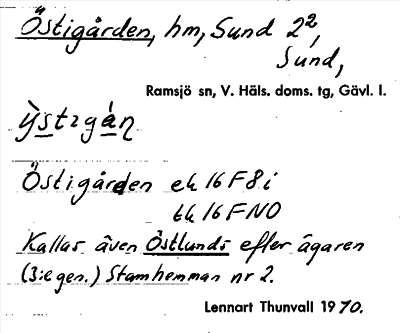 Östigården, hm, Sund 2²,
Sund,
Ramsjö sn, V. Häls. doms. tg, Gävl. l.
ỳstıgȧ́n
Östigården ek 16 F 8 i
tk 16 F NO
Kallas även Östlunds efter ägaren
(3:e gen.) Stamhemman nr 2.
Lennart Thunvall 1970.